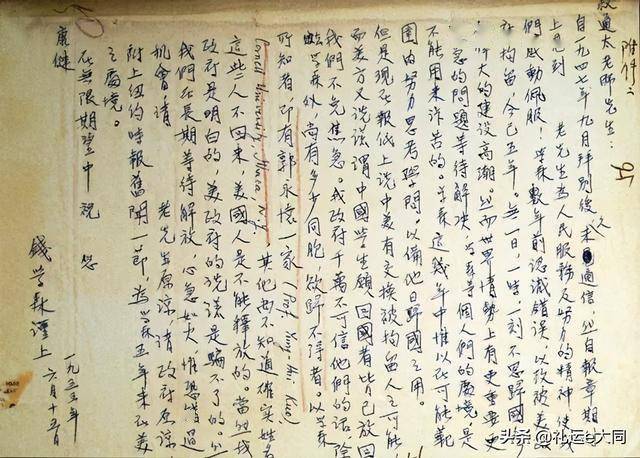 附件六
叔通太老师先生：
自一九四七年九月拜别后久未通信，然自報章期
上見到 老先生為人民服務及努力的精神，使我
們感動佩服！學森數年前認識錯誤，以致被美政
拘留，今已五年。無一日、一時、一刻不思歸國
偉大的建設高潮。然而世界情勢上有更重要更
急的問題等待解决，學森等個人們的處境，是
不能用來訴苦的。學森這幾年中惟以在可能範
圍内努力思考學問，以備他日歸國之用。
但是現在報纸上説中美有交換被拘留人之可能，
而美方又説谎謂中國學生願回國者皆已放回
我們不免焦急。我政府千萬不可信他們的話，除
學森外，尚有多少同胞，欲歸不得者。以學森
所知者，即有郭永懷一家（Prof. Yung-Huai Kuo,
Cornell University, Ithaca, N.Y.）其他尚不知道確实姓名
這些人不回來，美國人是不能釋放的。當然我
政府是明白的，美政府的説谎是騙不了的。
我們在長期等待解放，心急如火，惟恐錯過
機會，請 老先生原諒，請政府原諒，
附上纽约時報舊聞一節，為學森五年來在美
之處境。
在無限期望中祝 您
康健
錢學森謹上
一九五五年
六月十五日
头条 @礼运e大同